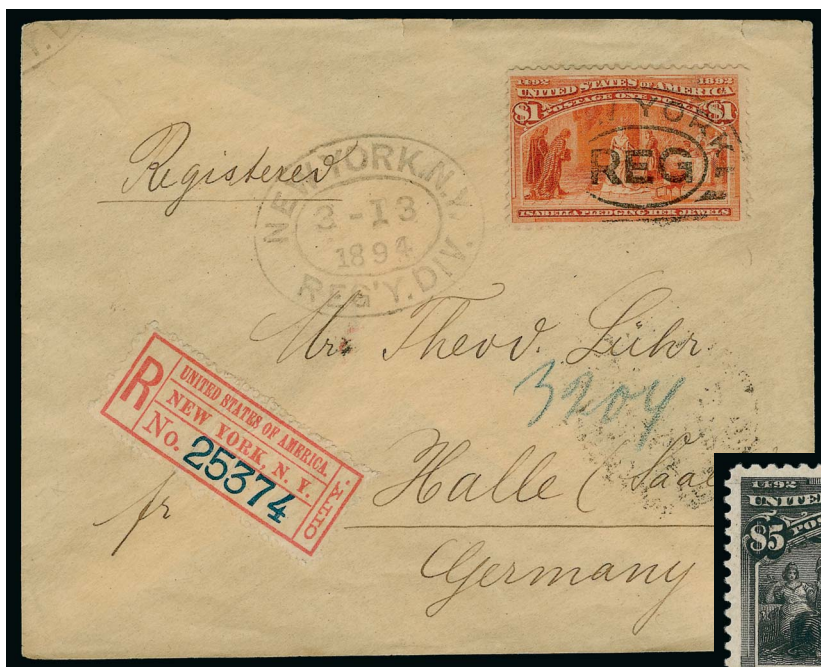 Y. D
1492 1892
UNITED STATES OF AMERICA
POSTAGE ONE
$1 $1
YORK
REG
ISABELLA PLEDGING HER JEWELS
Registered
NEW YORK, N.Y.
3-13
1894
REG'Y. DIV.
Mr. Theod. Lühr
3204
R
UNITED STATES OF AMERICA.
NEW YORK, N. Y.
No. 25374
Halle (Saal
fr
Germany
1492
UNITE
$5 POS